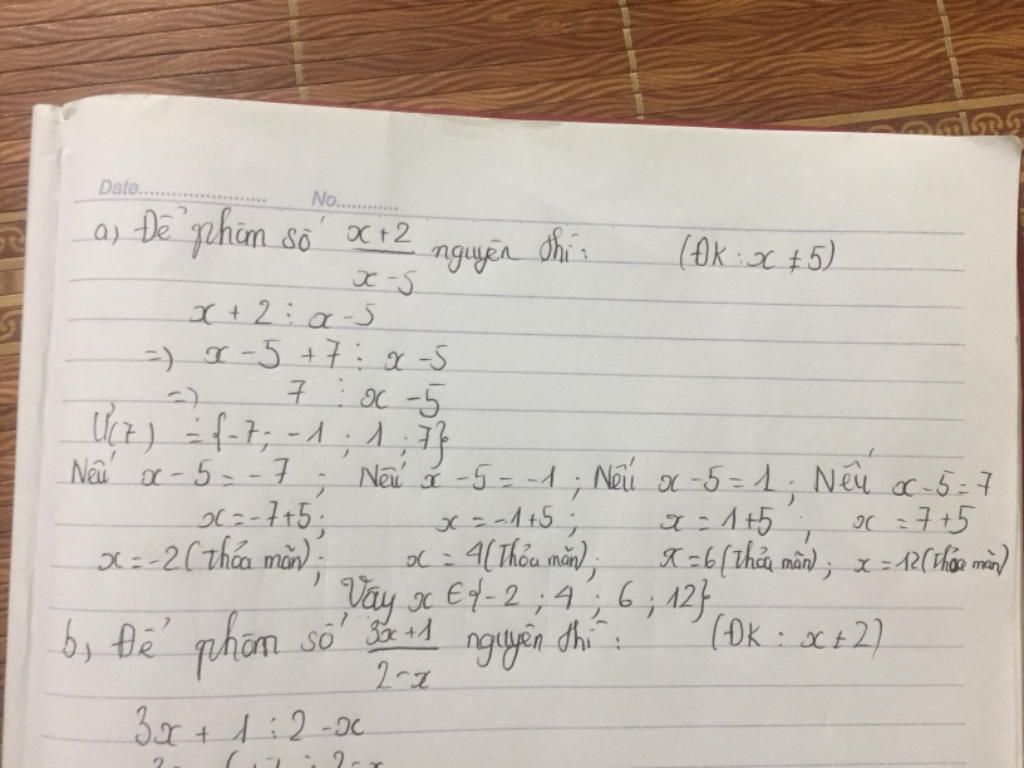 Date........................ No............
a, Để phân số x+2/x-5 nguyên thì: (ĐK: x ≠ 5)
x + 2 ⋮ x - 5
=) x - 5 + 7 ⋮ x - 5
=) 7 ⋮ x - 5
Ư(7) = {-7; -1; 1; 7}
Nếu x - 5 = -7; Nếu x - 5 = -1; Nếu x - 5 = 1; Nếu x - 5 = 7
x = -7+5; x = -1+5; x = 1+5; x = 7+5
x = -2 (Thỏa mãn); x = 4 (Thỏa mãn); x = 6 (Thỏa mãn); x = 12 (Thỏa mãn)
Vậy x ∈ {-2; 4; 6; 12}
b, Để phân số 3x+1/2-x nguyên thì: (ĐK: x ≠ 2)
3x + 1 ⋮ 2 - x